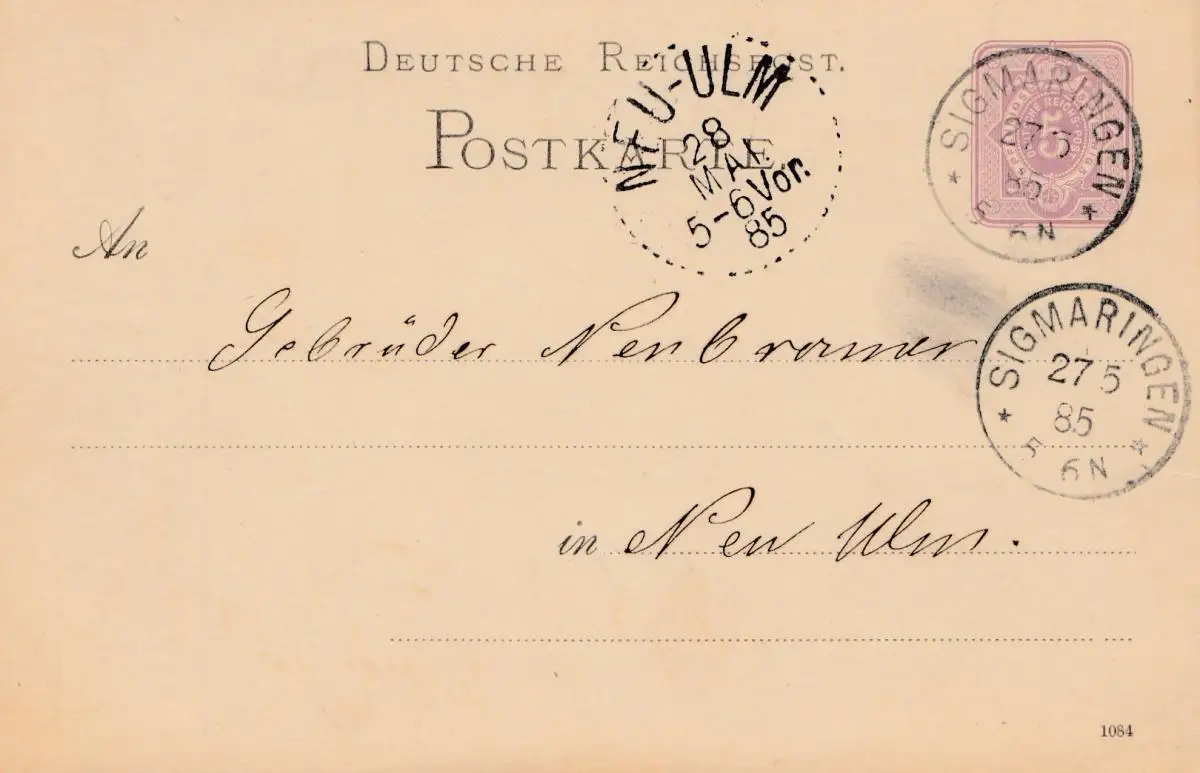 DEUTSCHE REICHSPOST.
POSTKARTE
NEU-ULM
28
MAI.
5-6Vor.
85
SIGMARINGEN
27 5
85
5 6N
An
Gebrüder
SIGMARINGEN
27 5
85
5 6N
in Neu Ulm.
1084